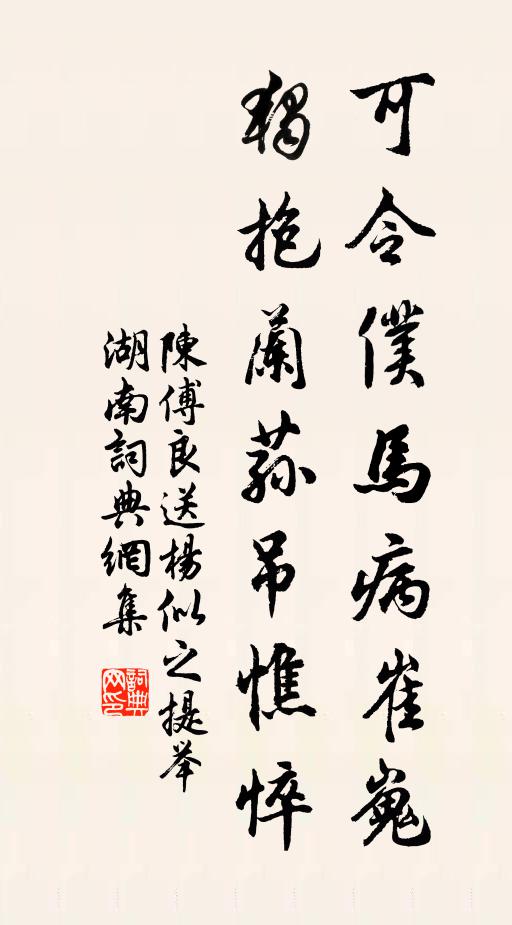 可令僕馬病崔嵬
獨抱蘭蓀吊憔悴
陳傅良送楊似之提举
湖南詞典網集
詞典
网印